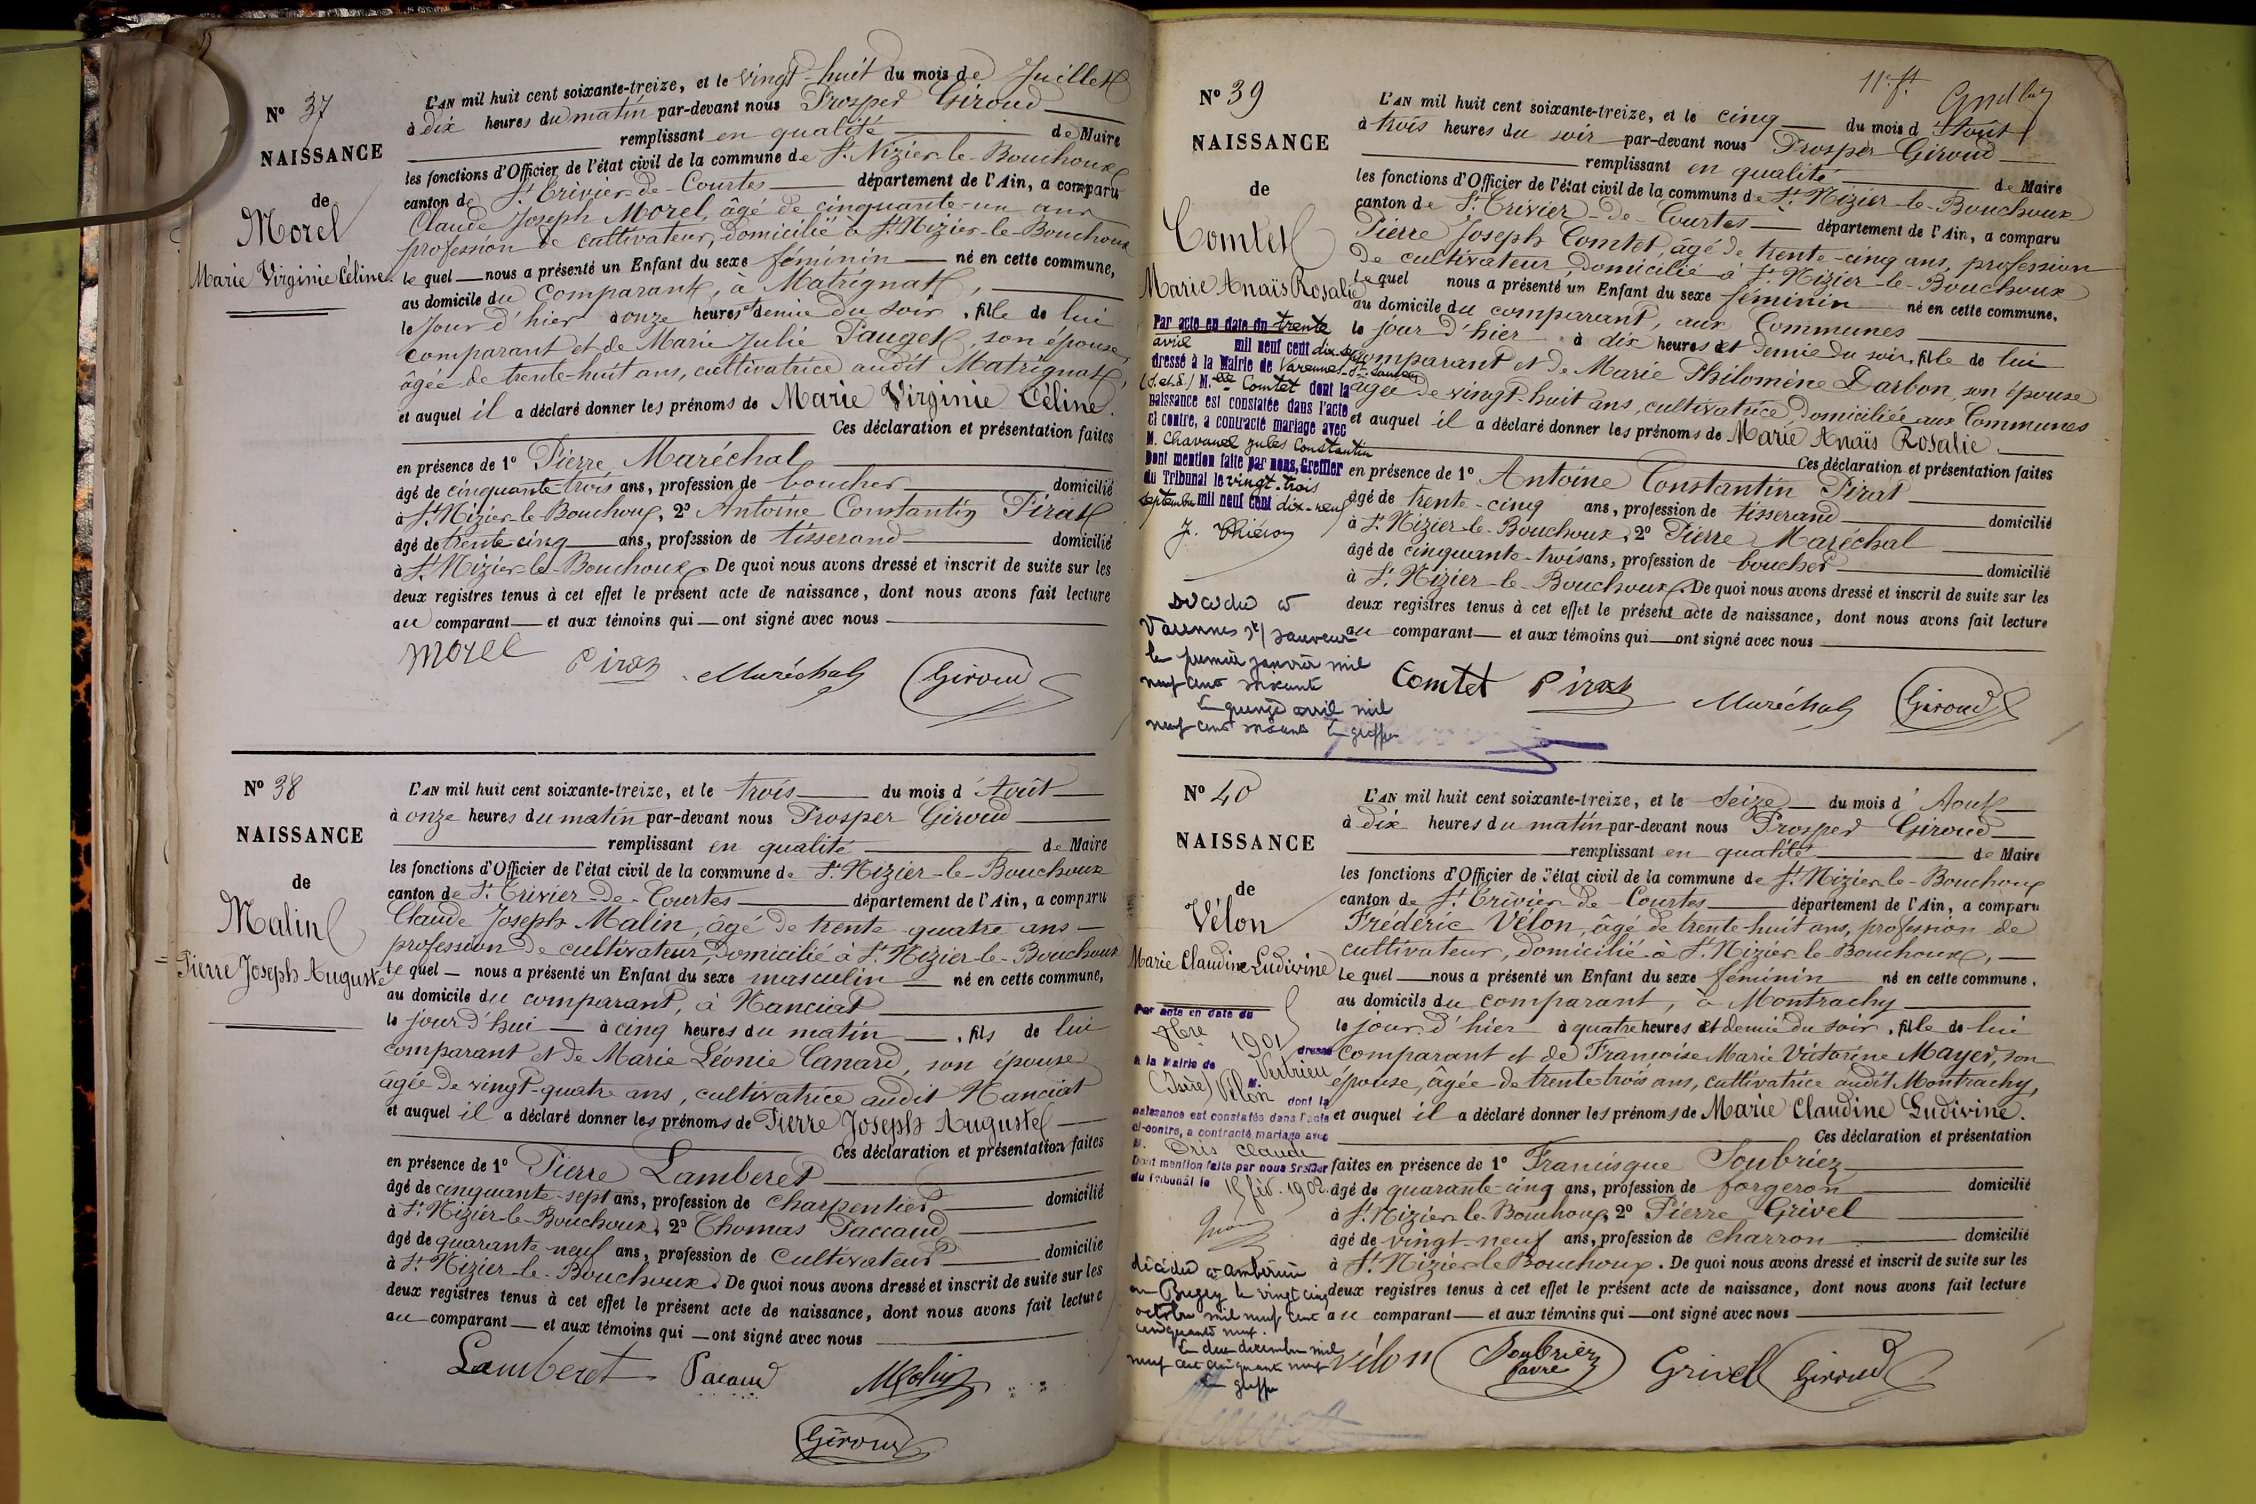 N° 37
NAISSANCE
de
Morel
Marie Virginie Céline.
L'AN mil huit cent soixante-treize, et le vingt-huit du mois de Juillet
à dix heures du matin par-devant nous Prosper Giroud
remplissant en qualité de Maire
les fonctions d'Officier de l'état civil de la commune de St. Nizier-le-Bouchoux
canton de St. Trivier-de-Courtes département de l'Ain, a comparu
Claude Joseph Morel, âgé de cinquante-un ans
profession de cultivateur, domicilié à St. Nizier-le-Bouchoux
le quel nous a présenté un Enfant du sexe féminin né en cette commune,
au domicile du comparant, à Matrignat,
le jour d'hier à onze heures et demie du soir, fille de lui
comparant et de Marie Julie Pauget, son épouse,
âgée de trente-huit ans, cultivatrice audit Matrignat,
et auquel il a déclaré donner les prénoms de Marie Virginie Céline.
Ces déclaration et présentation faites
en présence de 1° Pierre Maréchal
âgé de cinquante trois ans, profession de boucher domicilié
à St. Nizier-le-Bouchoux, 2° Antoine Constantin Pirat
âgé de trente-cinq ans, profession de tisserand domicilié
à St. Nizier-le-Bouchoux. De quoi nous avons dressé et inscrit de suite sur les
deux registres tenus à cet effet le présent acte de naissance, dont nous avons fait lecture
au comparant et aux témoins qui ont signé avec nous
Morel Pirat Maréchal Giroud
N° 38
NAISSANCE
de
Malin
Pierre Joseph Auguste
L'AN mil huit cent soixante-treize, et le trois du mois d'Août
à onze heures du matin par-devant nous Prosper Giroud
remplissant en qualité de Maire
les fonctions d'Officier de l'état civil de la commune de St. Nizier-le-Bouchoux
canton de St. Trivier-de-Courtes département de l'Ain, a comparu
Claude Joseph Malin, âgé de trente-quatre ans
profession de cultivateur, domicilié à St. Nizier-le-Bouchoux
le quel nous a présenté un Enfant du sexe masculin né en cette commune,
au domicile du comparant, à Nanciat
le jour d'hui à cinq heures du matin, fils de lui
comparant et de Marie Léonie Canard, son épouse
âgée de vingt-quatre ans, cultivatrice audit Nanciat
et auquel il a déclaré donner les prénoms de Pierre Joseph Auguste
Ces déclaration et présentation faites
en présence de 1° Pierre Lamberet
âgé de cinquante-sept ans, profession de charpentier domicilié
à St. Nizier-le-Bouchoux, 2° Thomas Paccaud
âgé de quarante-neuf ans, profession de cultivateur domicilié
à St. Nizier-le-Bouchoux. De quoi nous avons dressé et inscrit de suite sur les
deux registres tenus à cet effet le présent acte de naissance, dont nous avons fait lecture
au comparant et aux témoins qui ont signé avec nous
Lamberet Pacaud Malin
Giroud
11e ft.
N° 39
NAISSANCE
de
Comtet
Marie Anaïs Rosalie
Par acte en date du trente
avril mil neuf cent dix-
dressé à la Mairie de Varennes-St-Sauveur
(S.et.L.) M. Comtet dont la
naissance est constatée dans l'acte
ci contre, a contracté mariage avec
M. Chavanel Jules Constantin
Dont mention faite par nous, Greffier
du Tribunal le vingt-trois
septembre mil neuf cent dix-neuf
Décédée à
Varennes St/ Sauveur
le premier janvier mil
neuf cent soixante
Le quinze avril mil
neuf cent soixante Le greffier
L'AN mil huit cent soixante-treize, et le cinq du mois d'Août
à trois heures du soir par-devant nous Prosper Giroud
remplissant en qualité de Maire
les fonctions d'Officier de l'état civil de la commune de St. Nizier-le-Bouchoux
canton de St. Trivier-de-Courtes département de l'Ain, a comparu
Pierre Joseph Comtet, âgé de trente-cinq ans, profession
de cultivateur, domicilié à St. Nizier-le-Bouchoux
le quel nous a présenté un Enfant du sexe féminin né en cette commune,
au domicile du comparant, aux Communes
le jour d'hier à dix heures et demie du soir, fille de lui
comparant et de Marie Philomène Darbon, son épouse
âgée de vingt-huit ans, cultivatrice domiciliée aux Communes
et auquel il a déclaré donner les prénoms de Marie Anaïs Rosalie.
Ces déclaration et présentation faites
en présence de 1° Antoine Constantin Pirat
âgé de trente-cinq ans, profession de tisserand domicilié
à St. Nizier-le-Bouchoux, 2° Pierre Maréchal
âgé de cinquante-trois ans, profession de boucher domicilié
à St. Nizier-le-Bouchoux. De quoi nous avons dressé et inscrit de suite sur les
deux registres tenus à cet effet le présent acte de naissance, dont nous avons fait lecture
au comparant et aux témoins qui ont signé avec nous
Comtet Pirat Maréchal Giroud
N° 40
NAISSANCE
de
Vélon
Marie Claudine Ludivine
Par acte en date du
8bre 1901 dressé
à la Mairie de Vertrieu
(Isère) M. Vélon dont la
naissance est constatée dans l'acte
ci-contre, a contracté mariage avec
M. Oris Claude
Dont mention faite par nous Greffier
du Tribunal le 15 fév. 1902.
Décédée à Ambérieu
en Bugey le vingt cinq
octobre mil neuf cent
cinquante neuf.
Le deux décembre mil
neuf cent cinquante neuf
Le greffier
L'AN mil huit cent soixante-treize, et le seize du mois d'Août
à dix heures du matin par-devant nous Prosper Giroud
remplissant en qualité de Maire
les fonctions d'Officier de l'état civil de la commune de St. Nizier-le-Bouchoux
canton de St. Trivier-de-Courtes département de l'Ain, a comparu
Frédéric Vélon, âgé de trente-huit ans, profession de
cultivateur, domicilié à St. Nizier-le-Bouchoux,
le quel nous a présenté un Enfant du sexe féminin né en cette commune,
au domicile du comparant, à Montrachy
le jour d'hier à quatre heures et demie du soir, fille de lui
comparant et de Françoise Marie Victorine Mayer, son
épouse, âgée de trente trois ans, cultivatrice audit Montrachy,
et auquel il a déclaré donner les prénoms de Marie Claudine Ludivine.
Ces déclaration et présentation
faites en présence de 1° Francisque Soubriez
âgé de quarante-cinq ans, profession de forgeron domicilié
à St. Nizier-le-Bouchoux, 2° Pierre Grivel
âgé de vingt-neuf ans, profession de charron domicilié
à St. Nizier-le-Bouchoux. De quoi nous avons dressé et inscrit de suite sur les
deux registres tenus à cet effet le présent acte de naissance, dont nous avons fait lecture
au comparant et aux témoins qui ont signé avec nous
Vélon Soubriez Favre Grivel Giroud